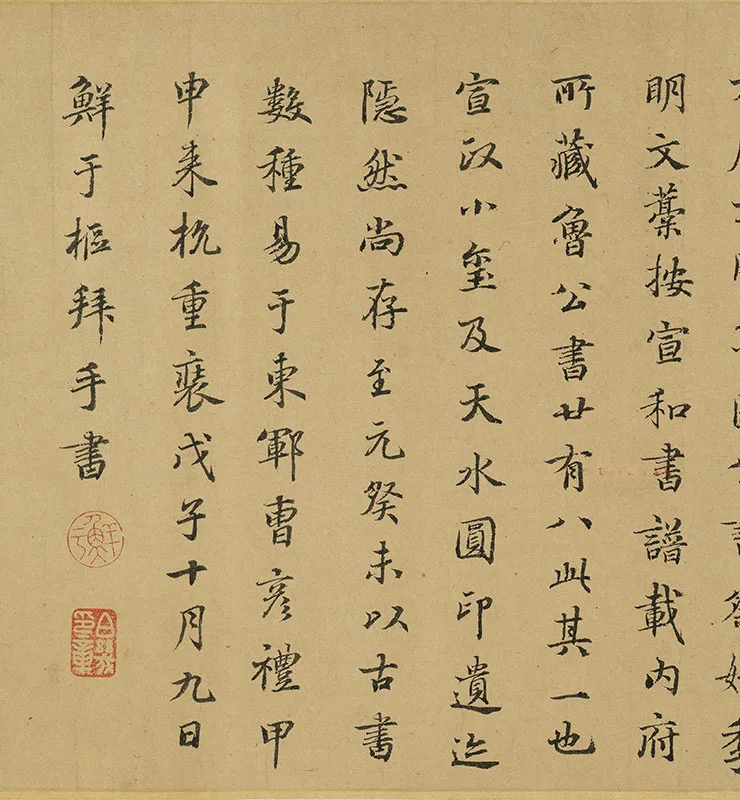 明文藁按宣和書譜載內府
所藏魯公書廿有八此其一也
宣政小璽及天水圓印遺迹
隱然尚存至元癸未以古書
數種易于東鄆曹彥禮甲
申來杭重裝戊子十月九日
鮮于樞拜手書
鮮于